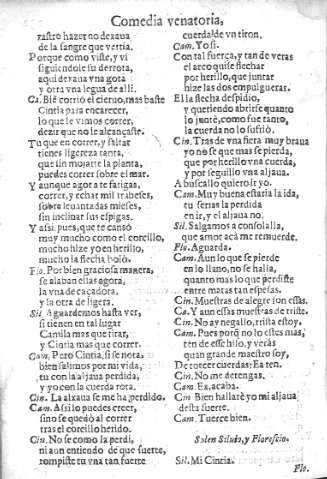 Comedia venatoria,
rastro hazer no dexaua
de la sangre que vertia.
Porque como viste, y vi
siguiendole su derrota,
aqui dexaua vna gota
y otra vna legua de alli.
Ca. Biē corriò el cieruo, mas baste
Cintia para encarecer,
lo que le vimos correr,
dezir que no le alcançaste.
Tu que en correr, y saltar
tienes ligereza tanta,
que sin mojarte la planta,
puedes correr sobre el mar.
Y aunque agora te fatigas,
correr, y echar mil trabeses,
sobre leuantadas mieses,
sin inclinar sus espigas.
Y assi, pues, que te cansò
muy mucho como el corcillo,
mucho hize yo en herillo,
mucho la flecha bolò.
Flo. Por bien graciosa manera,
se alaban ellas agora,
la vna de caçadora,
y la otra de ligera.
Sil. Aguardemos hasta ver,
si tienen en tal lugar
Camila mas que tirar,
y Cintia mas que correr.
Cam. Pero Cintia, si se nota,
bien salimos por mi vida,
tu con la aljaua perdida,
y yo con la cuerda rota.
Cin. La alxaua se me ha perdido.
Cam. Assi lo puedes creer,
sino se quedò al correr
tras el corcillo herido.
Cin. No se como la perdi,
ni aun entiendo de que suerte,
rompiste tu vna tan fuerte
cuerda de vn tiron.
Cam. Yo si.
Con tal fuerça, y tan de veras
el arco quise flechar
por herillo, que juntar
hize las dos empulgueras.
El la flecha despidio,
y queriendo abrirse quanto
lo juntè, como fue tanto,
la cuerda no lo sufriò.
Cin. Tras de vna fiera muy braua
yo no se que mas se pierda,
que por herillo vna cuerda,
y por seguillo vna aljaua.
A buscallo quiero ir yo.
Cam. Muy buena estaria la ida,
tu serias la perdida
en ir, y el aljaua no.
Sil. Salgamos a consolalla,
que amor acà me remuerde.
Flo. Aguarda.
Cam. Aun lo que se pierde
en lo llano, no se halla,
quanto mas lo que perdiste
entre matas tan espesas.
Cin. Muestras de alegre son essas.
Ca. Y aun essas muestras de triste.
Cin. No ay negallo, triste estoy.
Cam. Pues porq̃ no lo estes mas,
ten de esse hilo, y veràs
quan grande maestro soy,
De torcer cuerdas: Ea ten.
Cin. No me detengas.
Cam. Ea, acaba.
Cin Bien hallarè yo mi aljaua
desta suerte.
Cam. Tuerce bien.
Salen Siluio, y Florescio.
Sil. Mi Cintia.
Flo.